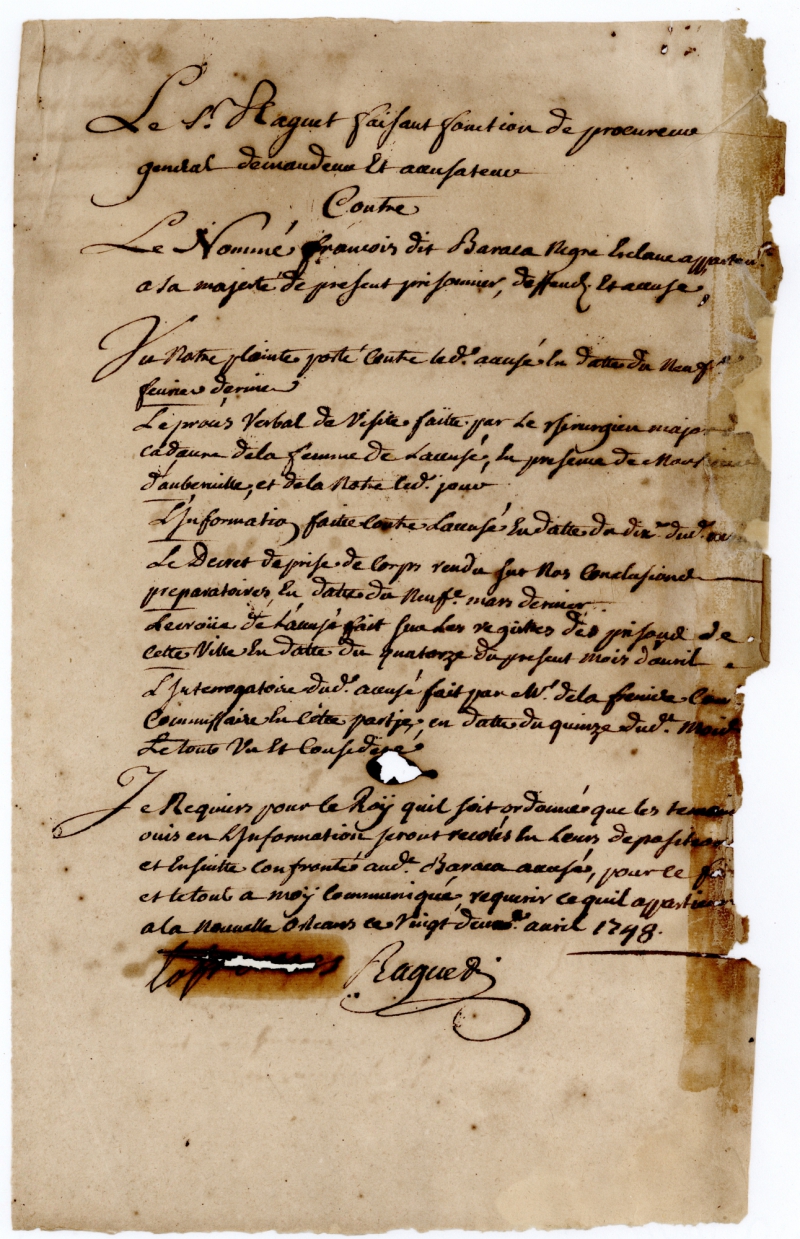 Le Sr. Raguet faisant fonction de procureur
general demandeur Et accusateur
Contre
Le Nommé francois dit Baraca Negre Esclave appartent.
a sa majesté de present prisonnier, deffendr Et accusé,
Vu Notre plainte porté Contre led. accusé En datte du Neuf
fevrier dernier
Le procés Verbal de Visite faitte par Le chirurgien major
cadavre de la femme de Laccusé, En presence de
d'auberville, et de la Notre led. jour
L'Information faitte contre Laccusé En datte du dix dud.
Le Decret de prise de Corps rendu sur Nos Conclusions
preparatoires, En datte du Neufe. mars dernier.
Lecroüe de L'accusé fait sur Les registres des prisons de
cette Ville En datte du quatorze du present mois d'avril
L'Interrogatoire dud. accusé fait par Mr. de la freniere Con.
Commissaire En cette partie, en datte du quinze dud. Mois
Le tout Vu Et Consideré
Je Requiers pour le Roÿ quil soit ordonné que les temoins
ouis en L'Information seront recolés En Leurs depositions
et Ensuitte confrontés aud. Baraca accusé, pour ce
et le tout a moÿ Communiqué, requerir ce quil appartiendra
a la Nouvelle Orleans ce Vingt deuxe. avril 1748.
Raguet